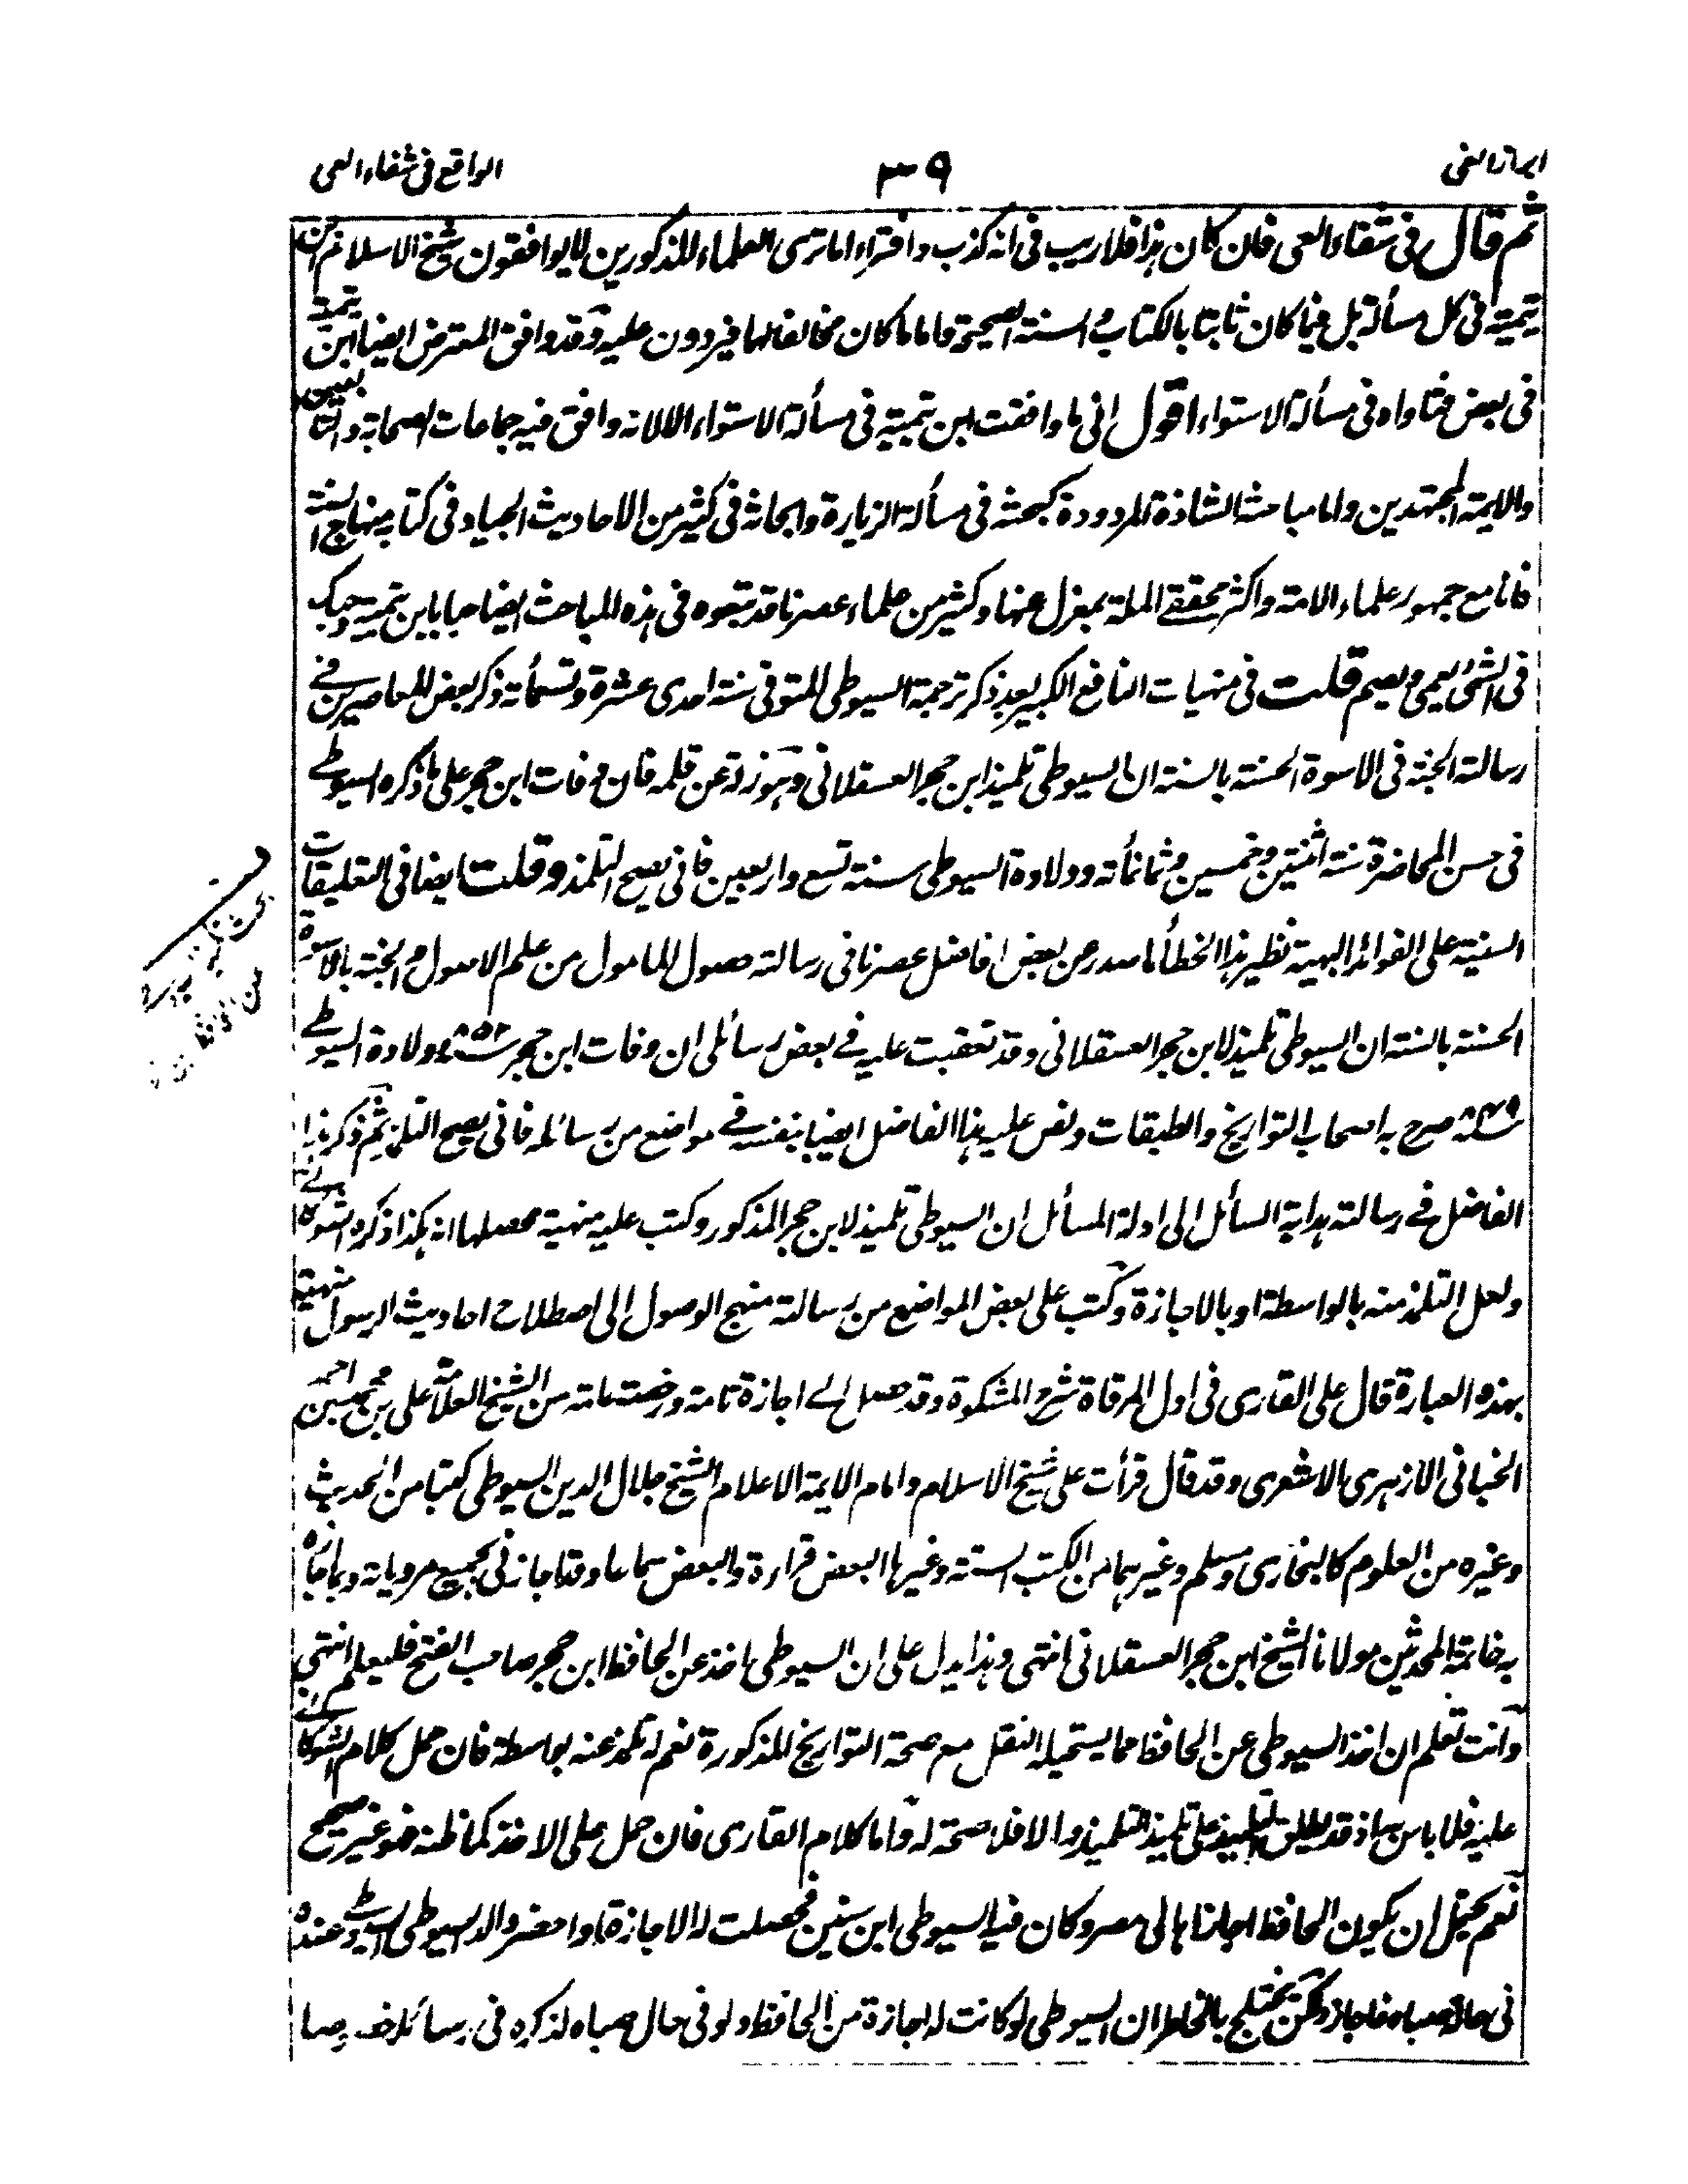 ابراز الغی
٣٩
الواقع فی شفاء العی
ثم قال فی شفاء العی فان کان ہذا فلا ریب فی انہ کذب وافتراء اما تری العلماء المذکورین لا یوافقون شیخ الاسلام ابن
تیمیة فی کل مسألة بل فیما کان ثابتا بالکتاب والسنة الصحیحة فاما ما کان مخالفا لہما فیردون علیہ وقد وافق المعترض ایضا ابن تیمیة
فی بعض فتاواہ فی مسألة الاستواء اقول انی ما وافقت ابن تیمیة فی مسألة الاستواء الا لانہ وافق فیہ جماعات الصحابة والتابعین
والایمة المجتہدین واما مباحثہ الشاذة المردودة کبحثہ فی مسألة الزیارة وابحاثہ فی کثیر من الاحادیث الجیاد فی کتابہ منہاج السنة
فانا مع جمہور علماء الامة واکثر محققے الملة بمعزل عنہا وکثیر من علماء عصرنا قد تبعوہ فی ہذہ المباحث ایضا حبا بابن تیمیة وحبک
فی الشئ یعمی ویصم قلت فی منہیات النافع الکبیر بعد ذکر ترجمة السیوطی المتوفی سنة احدی عشرة وتسعمأة ذکر بعض المعاصرین فے
رسالتہ الجنة فی الاسوة الحسنة بالسنة ان السیوطی تلمیذ ابن حجر العسقلانی وہو زلة عن قلمہ فان وفات ابن حجر علی ما ذکرہ السیوطے
فی حسن المحاضرة سنة اثنتین وخمسین وثمانمأتہ وولادة السیوطی سنة تسع واربعین فانی یصح التلمذ وقلت ایضا فی التعلیقات
السنیة علی الفوائد البہیة نظیر ہذا الخطأ ما صدر عن بعض افاضل عصرنا فی رسالتہ حصول المامول من علم الاصول والجنة بالاسوة
الحسنة بالسنة ان السیوطی تلمیذ لابن حجر العسقلانی وقد تعقبت علیہ فے بعض رسائلی ان وفات ابن حجر ٨٥٢ وولادة السیوطے
٨٤٩ صرح بہ اصحاب التواریخ والطبقات ونص علیہ ہذا الفاضل ایضا بنفسہ فے مواضع من رسائلہ فانی یصح التلمذ ثم ذکر ہذا
الفاضل فے رسالتہ ہدایة السائل الی ادلة المسائل ان السیوطی تلمیذ لابن حجر المذکور وکتب علیہ منہیة محصلہا انہ ہکذا ذکرہ الشوکانے
ولعل التلمذ منہ بالواسطة او بالاجازة وکتب علی بعض المواضع من رسالتہ منہج الوصول الی اصطلاح احادیث الرسول منہیة
بہذہ العبارة قال علی القاری فی اول المرقاة شرح المشکوة وقد حصل لے اجازة تامة ورخصة عامة من الشیخ العلامة علی بن محمد بن احمد
الجنانی الازہری الاشعری وقد قال قرأت علی شیخ الاسلام وامام الایمة الاعلام الشیخ جلال الدین السیوطی کتبا من الحدیث
وغیرہ من العلوم کالبخاری ومسلم وغیرہما من الکتب الستة وغیرہا البعض قراءة والبعض سماعا وقد اجازنی بجمیع مرویاتہ وبما اجازہ
بہ خاتمة المحدثین مولانا الشیخ ابن حجر العسقلانی انتہی وہذا یدل علی ان السیوطی اخذ عن الحافظ ابن حجر صاحب الفتح فلیعلم انتہی
وانت تعلم ان اخذ السیوطی عن الحافظ مما یستحیلہ النقل مع صحة التواریخ المذکورة نعم لہ تلمذ عنہ بواسطة فان حمل کلام الشوکانے
علیہ فلا باس بہ اذ قد یطلق التلمیذ علی تلمیذ التلمیذ والا فلا صحة لہ واما کلام القاری فان حمل علی الاخذ کما ظنہ فہو غیر صحیح
نعم یحتمل ان یکون الحافظ اجاز اہالی مصر وکان فیہا السیوطی ابن سنین فحصلت لہ الاجازة او احضر والد السیوطی السیوطے عندہ
فی حالة صباہ فاجازہ ولکن یختلج بالخاطر ان السیوطی لو کانت لہ اجازة من الحافظ ولو فی حال صباہ لذکرہ فی رسائلہ خصوصا